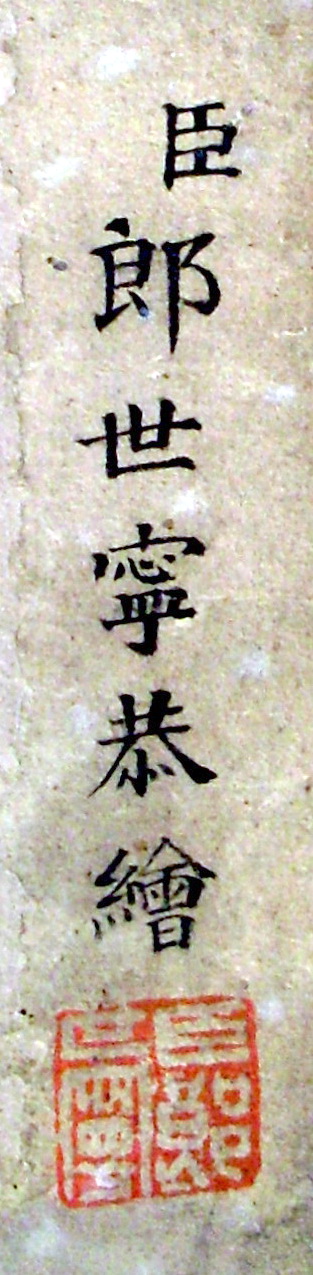 臣郎世寧恭繪
臣郎世寧